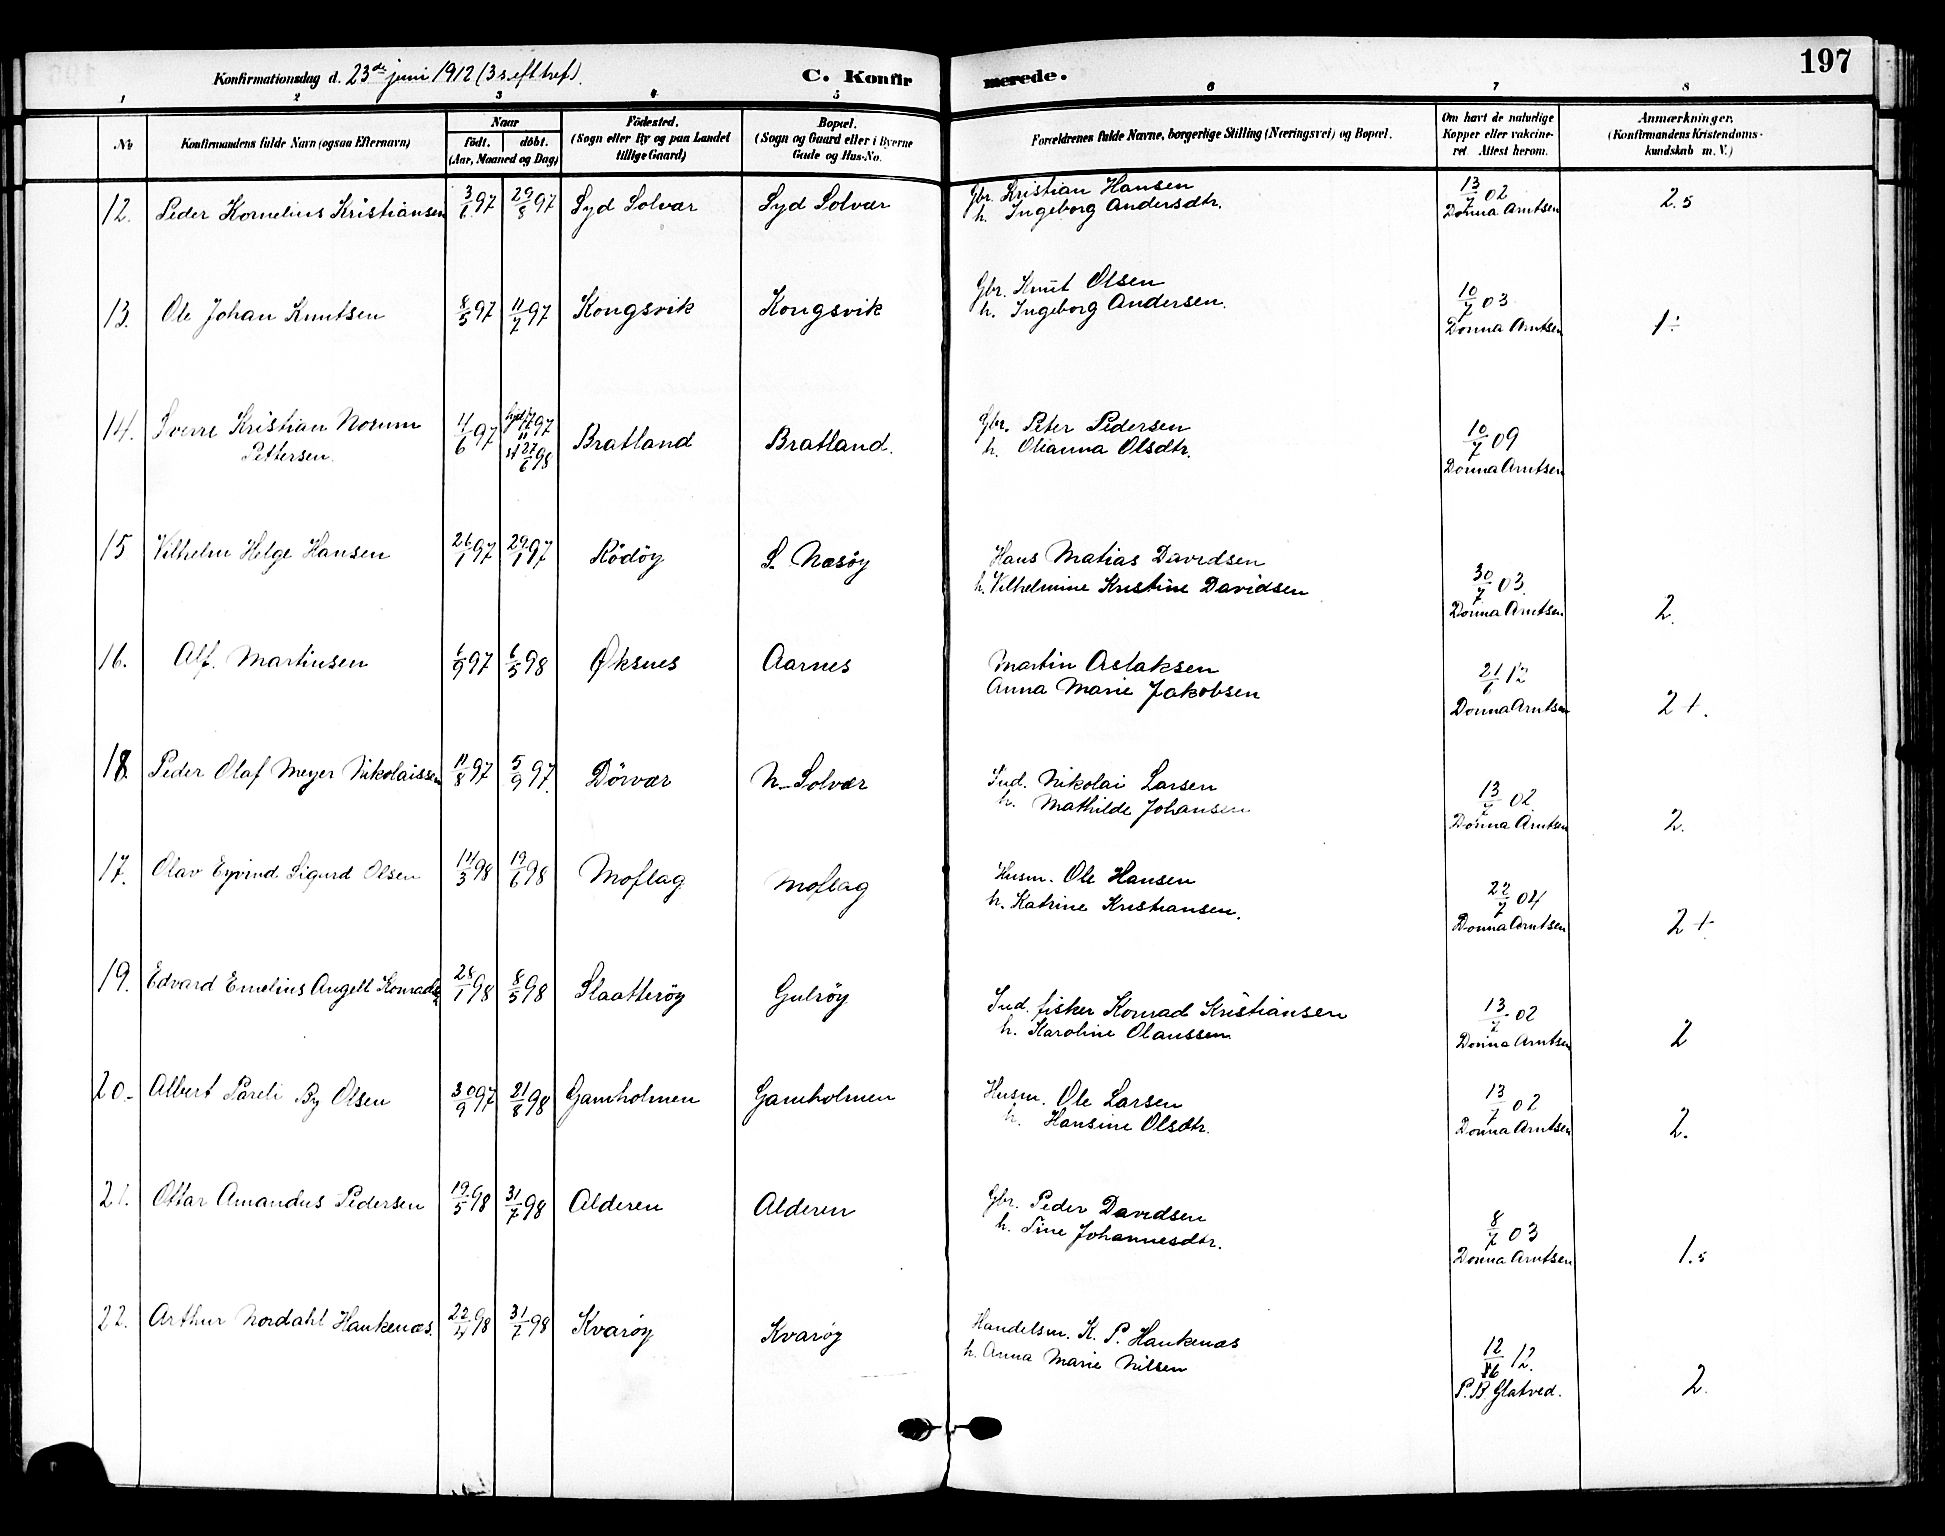 Konfirmationsdag d. 23de juni 1912 (3 s. eft. tref.) C. Konfirmerede. 197
1 2 3 4 5 6 7 8
No Konfirmandens fulde Navn (ogsaa Efternavn) Naar født. døbt. (Aar, Maaned og Dag) Fødested. (Sogn eller By og paa Landet tillige Gaard) Bopæl. (Sogn og Gaard eller i Byerne Gade og Hus-No. Forældrenes fulde Navne, borgerlige Stilling (Næringsvei) og Bopæl. Om havt de naturlige Kopper eller vakcineret. Attest herom. Anmærkninger. (Konfirmandens Kristendomskundskab m. V.)
12. Peder Kornelius Kristiansen 3/6 97 29/8 97 Syd Solvær Syd Solvær Gbr. Kristian Hansen 13/7 02 2.5
h. Ingeborg Andersdtr. Donna Arntsen
13. Ole Johan Knutsen 8/5 97 11/7 97 Kongsvik Kongsvik Gbr. Knut Olsen 10/7 03 1÷
h. Ingeborg Andersen. Donna Arntsen
14. Sverre Kristian Norum 4/6 97 97 Bratland Bratland. Gbr. Peter Pedersen 10/7 09
Pettersen. st 27/6 98 h. Olianna Olsdtr. Donna Arntsen
15 Vilhelm Helge Hansen 26/1 97 29/1 97 Rödöy S. Næsöy Hans Matias Davidsen 30/7 03. 2.
h. Vilhelmine Kristine Davidsen Donna Arntsen
16. Alf. Martinsen 6/9 97 6/5 98 Øksnes Aarnes Martin Aslaksen 21/6 12 2+.
Anna Marie Jakobsen Donna Arntsen
18. Peder Olaf Meyer Nikolaissen 11/8 97 5/9 97. Dörvær N-Solvær Ind. Nikolai Larsen 13/7 02 2.
h. Mathilde Johansen Donna Arntsen
17. Olav Eyvind Sigurd Olsen 14/3 98 19/6 98 Moflag Moflag Husm. Ole Hansen 22/7 04 2+
h. Katrine Kristiansen. Donna Arntsen
19. Edvard Emelius Angell Konradsen 28/1 98 8/5 98 Slaatteröy Gulröy Ind. fisker Konrad Kristiansen 13/7 02 2
h. Karoline Olaussen Donna Arntsen
20. Albert Pareli By Olsen 30/9 97 21/8 98 Gamholmen Gamholmen Husm. Ole Larsen 13/7 02 2.
h. Hansine Olsdtr. Donna Arntsen
21. Ottar Amandus Pedersen 19/5 98 31/7 98 Alderen Alderen Gbr. Peder Davidsen 8/7 03 1.5
h. Sine Johannesdtr. Donna Arntsen
22. Arthur Nordahl Haukenæs. 22/4 98 31/7 98 Kvaröy Kvaröy Handelsm. K. P. Haukenæs 12/6 12. 2.
h. Anna Marie Nilsen P. B. Glatved.